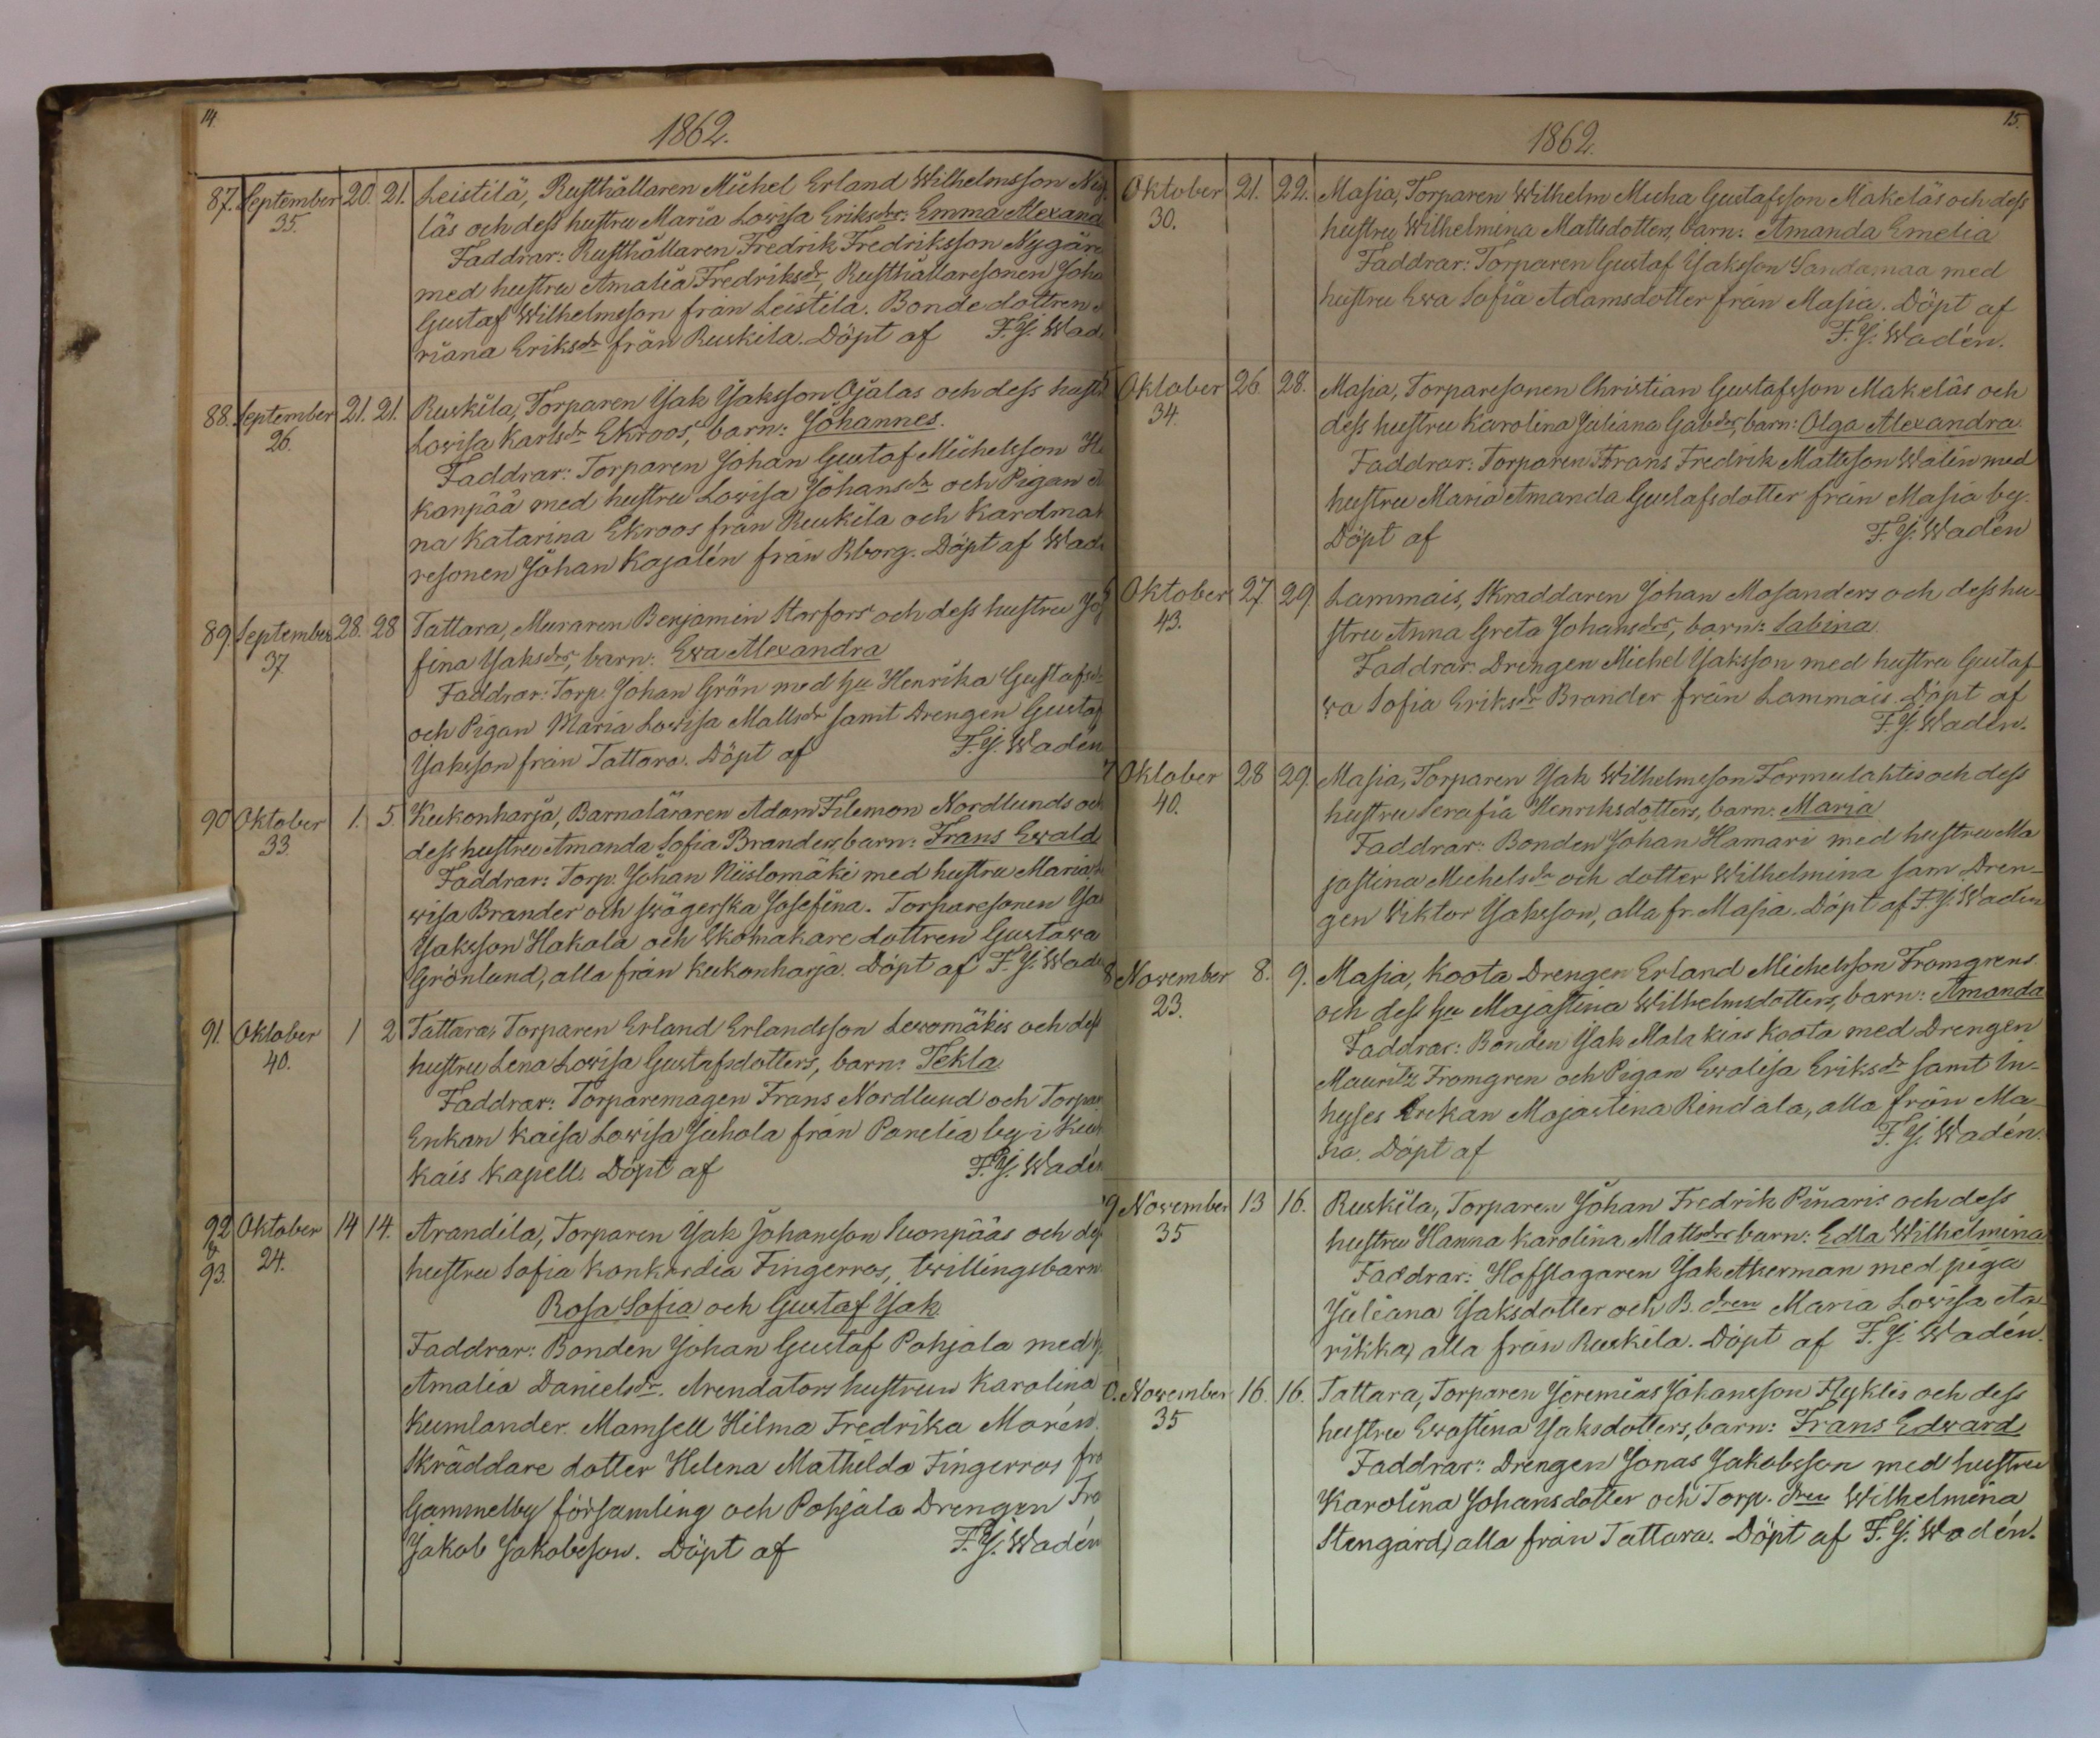 14.
1862.
87. September 20. 21. Leistilä, Rusthållaren Michel Erland Wilhelmsson
35. läs och dess hustru Maria Lowisa Eriksdrs: Emma Alexand
Faddrar: Rusthållaren Fredrik Fredriksson Nygår
med hustru Amalia Fredriksdr, Rusthållaresonen Joha
Gustaf Wilhelmsson från Leistila. Bondedottren
riana Eriksdr från Ruskila. Döpt af F.J. Wad
88. September 21. 21. Ruskila, Torparen Jak Jaksson Ojalas och dess hust
26. Lowisa Karlsdr Ekroos, barn: Johannes.
Faddrar: Torparen Johan Gustaf Michelsson
kanpää med hustru Lowisa Johansdr och Pigan
na Katarina Ekroos från Ruskila och Kardmak
resonen Johan Kajalén från Bborg. Döpt af Wad
89. September 28. 28 Tattara, Muraren Benjamin Storfors och dess hustru Jo
37. sina Jaksdrs, barn: Ewa Alexandra
Faddrar: Torp. Johan Grön med Hu Henrika Gustafsdr
och Pigan Maria Lowisa Mattsdr samt Drengen Gustaf
Jaksson från Tattara. Döpt af F.J. Wadén
90 Oktober 1. 5. Kukonharja, Barnaläraren Adam Filemon Nordlunds och
33. dess hustru Amanda Sofia Branders, barn: Frans Ewald
Faddrar: Torp. Johan Niislomäki med hustru Maria
wisa Brander och swägerska Josefina. Torparesonen Ja
Jaksson Hakala och Skomakaredottren Gustawa
Grönlund, alla från Kukonharja. Döpt af F.J. Wad
91. Oktober 1 2 Tattara, Torparen Erland Erlandsson Lewomäkis och dess
40. hustru Lena Lowisa Gustafsdotters, barn: Tekla
Faddrar: Torparemågen Frans Nordlund och Torpar
Enkan Kaisa Lowisa Juhola från Panelia by i Kiu
kais Kapell. Döpt af F.J. Wadén
92 Oktober 14 14. Arandila, Torparen Jak Johansson Suonpääs och des
& 24. hustru Sofia Konkordia Fingerros, twillingsbarn
93. Rosa Sofia och Gustaf Jak.
Faddrar: Bonden Johan Gustaf Pohjala med
Amalia Danielsdr. Arendators hustrun Karolina
Kumlander. Mamsell Hilma Fredrika Morén.
Skräddare dotter Helena Mathilda Fingerros fro
Gammelby församling och Pohjala Drengen
Jakob Jakobsson. Döpt af F.J. Wadén
15.
1862.
Oktober 21. 22. Masia, Torparen Wilhelm Micha Gustafsson Makeläs och dess
30. hustru Wilhelmina Mattsdotters, barn: Amanda Emelia
Faddrar: Torparen Gustaf Jaksson Sandamaa med
hustru Ewa Sofia Adamsdotter från Masia. Döpt af
F.J. Wadén.
Oktober 26 28. Masia, Torparesonen Christian Gustafsson Makeläs och
34. dess hustru Karolina Juliana Gabsdrs, barn: Olga Alexandra
Faddrar: Torparen Frans Fredrik Mattsson Walin med
hustru Maria Amanda Gustafsdotter från Masia by.
Döpt af F.J. Wadén
Oktober 27 29. Lammais, Skräddaren Johan Mosanders och dess hu-
43. stru Anna Greta Johansdrs, barn: Sabina.
Faddrar: Drengen Michel Jaksson med hustru Gusta-
wa Sofia Eriksdr Brander från Lammais. Döpt af
F.J. Wadén.
7 Oktober 28 29. Masia, Torparen Jak Wilhelmsson Formulahtis och dess
40. hustru Serafia Henriksdotters, barn: Maria
Faddrar: Bonden Johan Hamari med hustru Ma
jastina Michelsdr och dotter Wilhelmina sam Dren-
gen Wiktor Jaksson, alla fr. Masia. Döpt af F.J. Wadén
8 November 8. 9. Masia, Koota Drengen Erland Michelsson Fromgrens
23. och dess Hu Majastina Wilhelmsdotters, barn: Amanda
Faddrar: Bonden Jak Malakias Koota med Drengen
Mauritz Fromgren och Pigan Ewalisa Eriksdr samt In-
hyses Enkan Majastina Rindala, alla från Ma-
sia. Döpt af F.J. Wadén.
9 November 13 16. Ruskila, Torparen Johan Fredrik Pinaris och dess
35 hustru Hanna Karolina Mattsdrs barn: Edla Wilhelmina
Faddrar: Hofslagaren Jak Akerman med piga
Juliana Jaksdotter och B. dren Maria Lowisa Ata
rikka, alla från Ruskila. Döpt af F.J. Wadén.
0. November 16. 16. Tattara, Torparen Jeremias Johansson Flyktis och dess
35 hustru Ewastina Jaksdotters, barn: Frans Edward
Faddrar: Drengen Jonas Jakobsson med hustru
Karolina Johansdotter och Torp. dren Wilhelmina
Stengård, alla från Tattara. Döpt af F.J. Wadén.